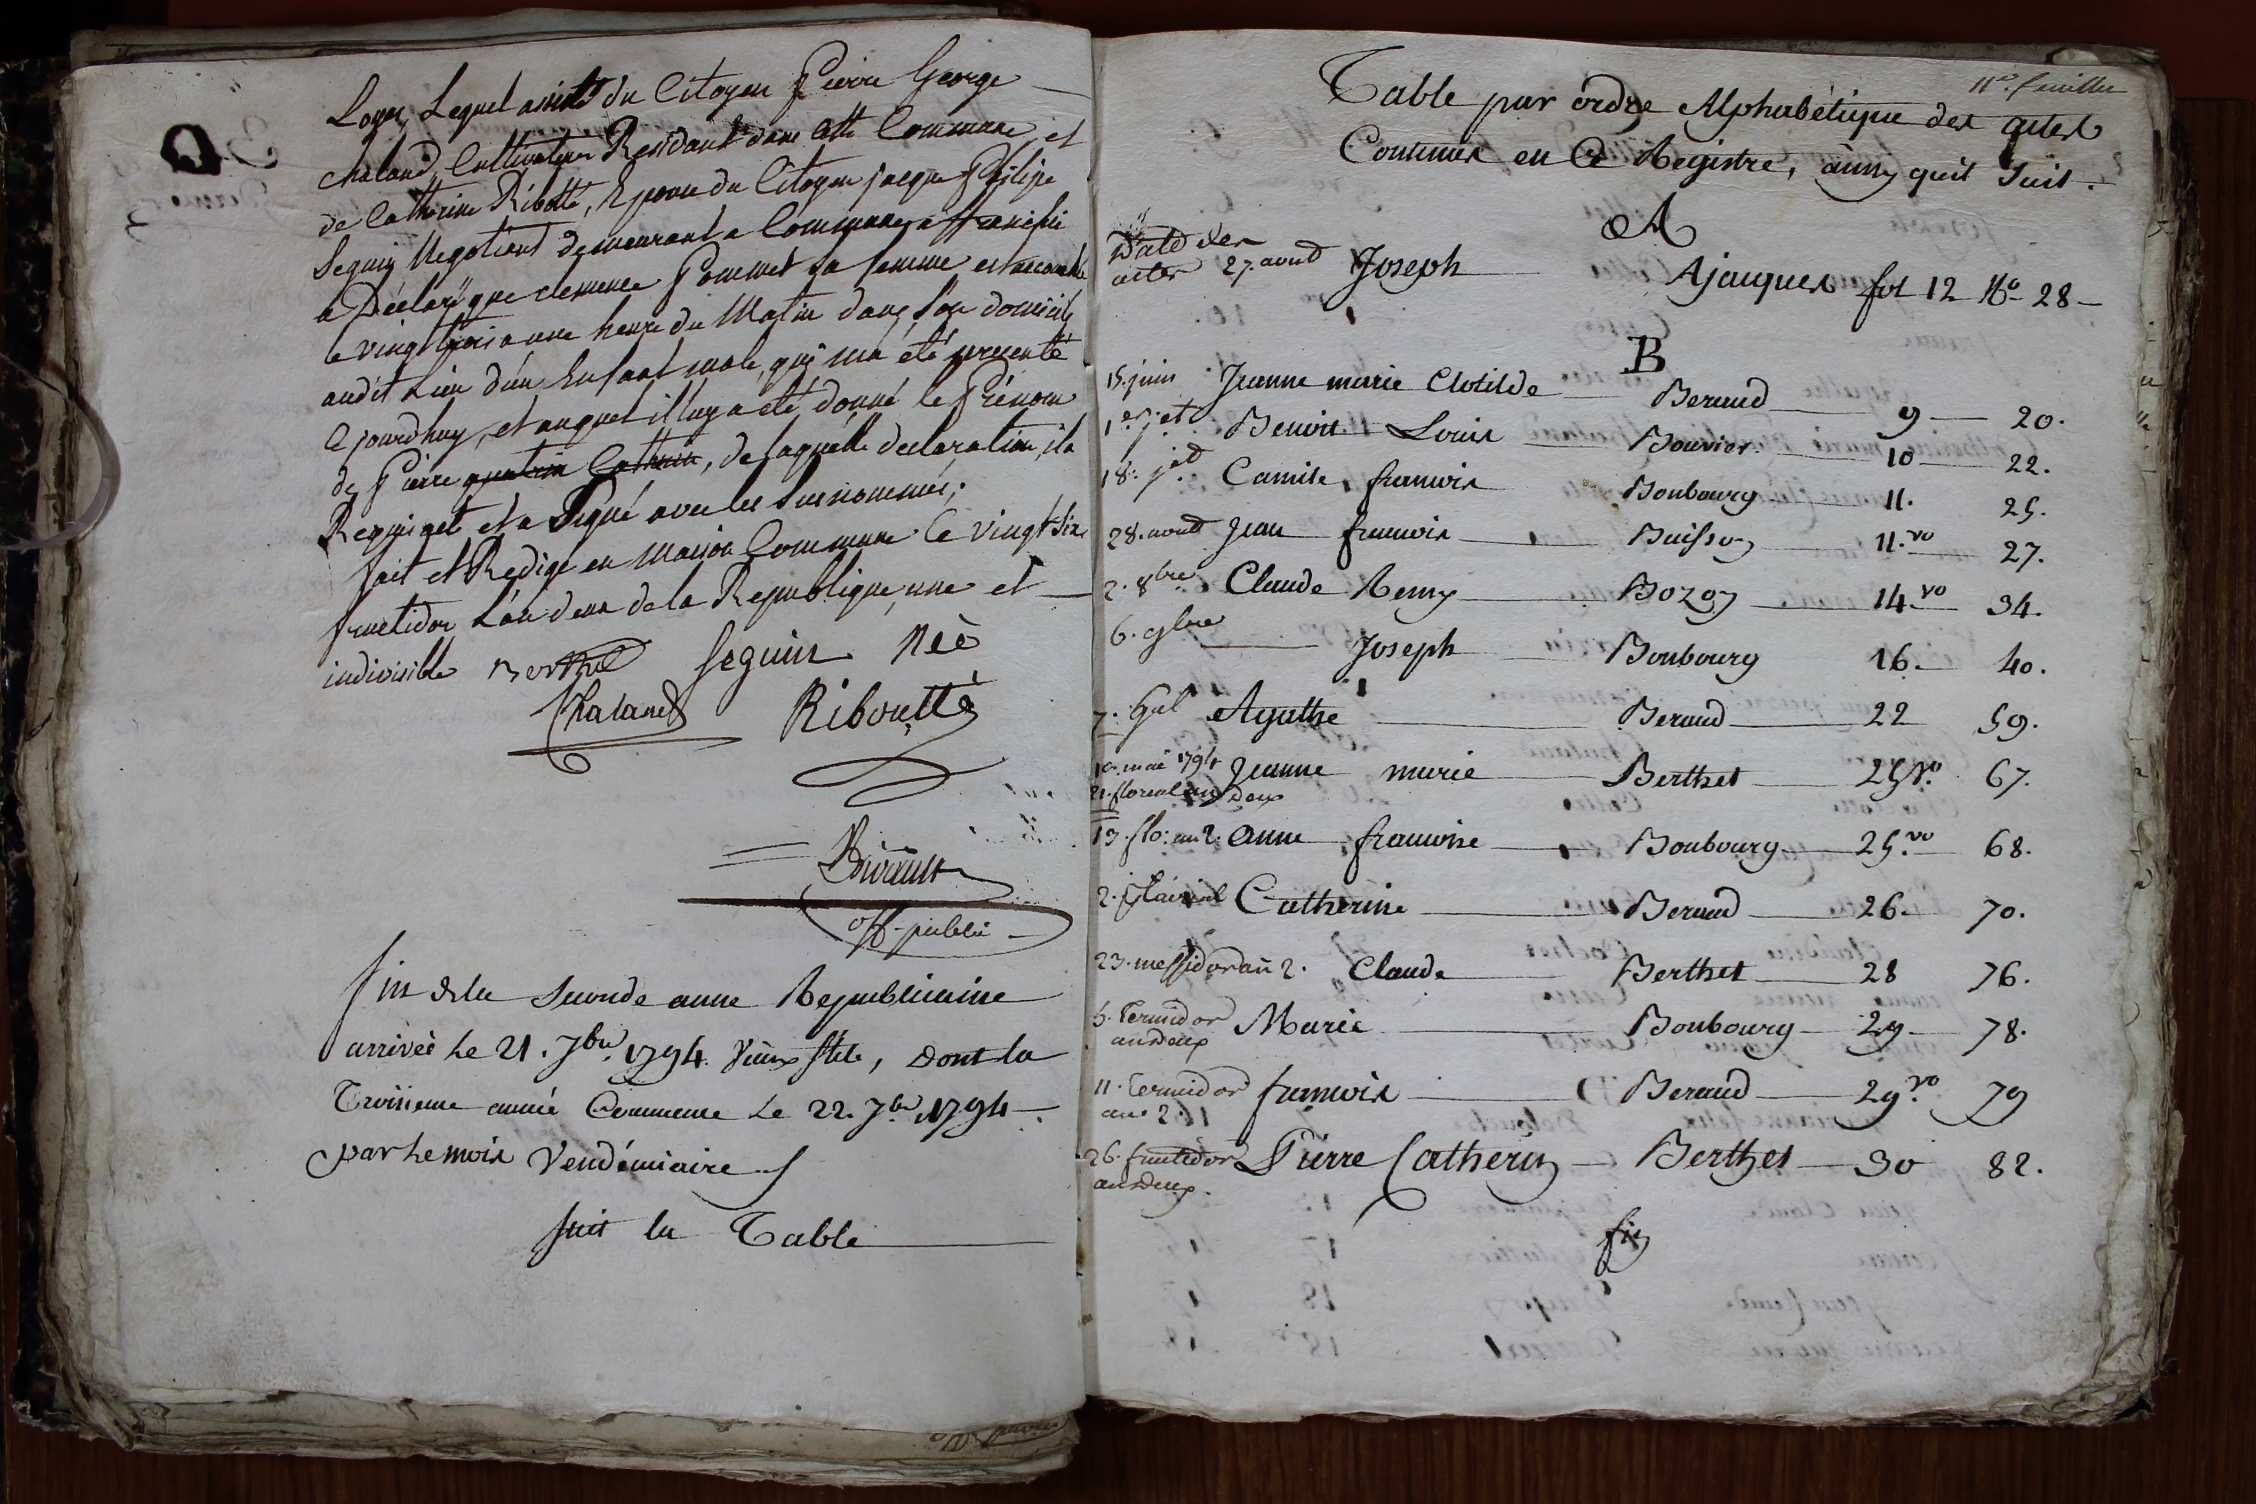 Loyer, Lequel assisté du Citoyen Pierre George
Chaland, Cultivateur Residant dans Cette Commune, et
de Catherine Ribotte, Epouse du Citoyen jacque Philipe
Seguin Negotiant demeurant a Commune affranchi
a Déclaré que clemence Pommet sa femme est accouché
le vingt trois a une heure du Matin dans son domicile
audit Lieu d'un Enfant male, qui ma été presenté
Cejourdhuy, et auquel il luy a eté donné le Prénom
de Pierre Catherin, de laquelle declaration, il a
Requis acte et a Signé avec les susnommés;
fait et Redigé en maison Commune Ce vingt six
fructidor L'an deux de la Republique, une et
indivisible Berthet Seguin Neè
Chaland Riboulttè
off. public
fin de la seconde anne Republicaine
arriveé le 21. 7bre 1794 Vieux stile, dont la
Troisieme année Commence le 22. 7bre 1794
par le mois Vendémiaire
suit la Table
11e. feuillet
Table par ordre Alphabétique des actes
Contenus en Ce Registre, ainsy quil suit.
A
Date des
actes 27. aoust Joseph Ajacques fol 12 No 28
B
15. juin Jeanne marie Clotilde Beraud 9 20.
1er. jet Benoit Louis Bouvier 10 22.
18. jet. Camile francois Boubourg 11. 25.
28. aoust Jean francois Buisson 11. vo 27.
2. 8bre Claude Remy Bozon 14. vo 34.
6. 9bre Joseph Boubourg 16. 40.
7. Agathe Beraud 22 59.
10. mai 1794 Jeanne marie Berthet 25 vo. 67.
21. floreal an deux
13. flo: an 2. Anne francoise Boubourg 25. vo 68.
2. Catherine Beraud 26. 70.
23. messidor an 2. Claude Berthet 28 76.
5. Termidor Marie Boubourg 29 78.
an deux
11. Termidor francois Beraud 29. vo 79
an 2.
26. fructidor Pierre Catherin Berthet 30 82.
an deux.
fin